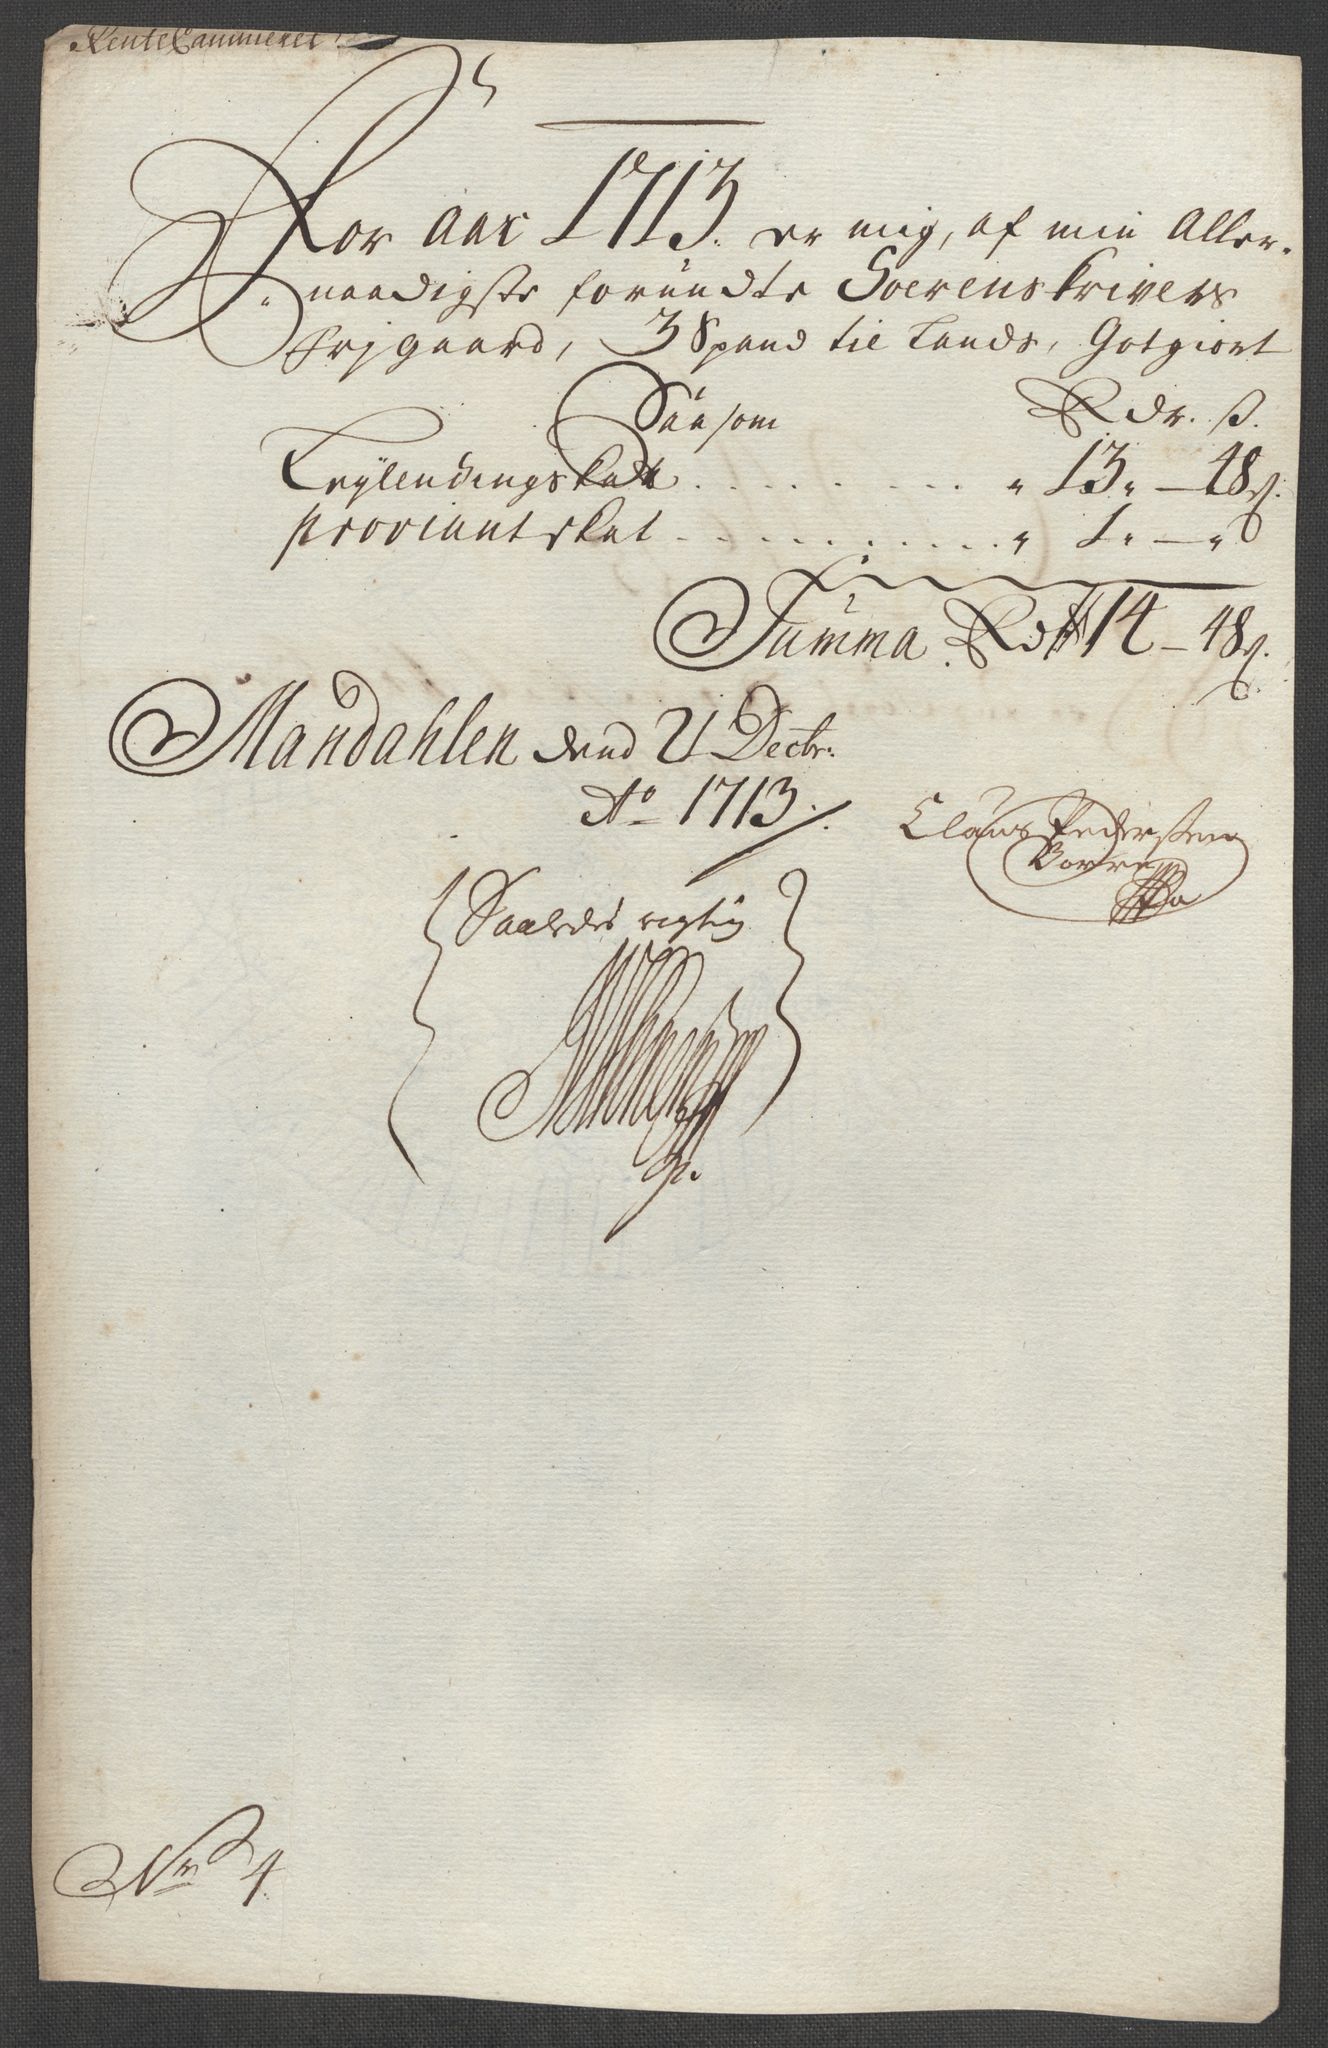 RenteCammeret
For Aar 1713. er mig, af min Aller-
naadigste forundte Soerenskrivers
frjgaard, 3 Spand til Lands, Gotgiort
Saasom Rdr. ß.
Leylendingskatt . . . . . . . . " 13" — 48ß.
proviantskat . . . . . . . . " 1" — "
Summa Rdr 14 — 48ß.
Mandahlen dend 21 Decbr:
Ao 1713.
Claus Pedersen
Borre
Saaledes rigtig
Nr 4